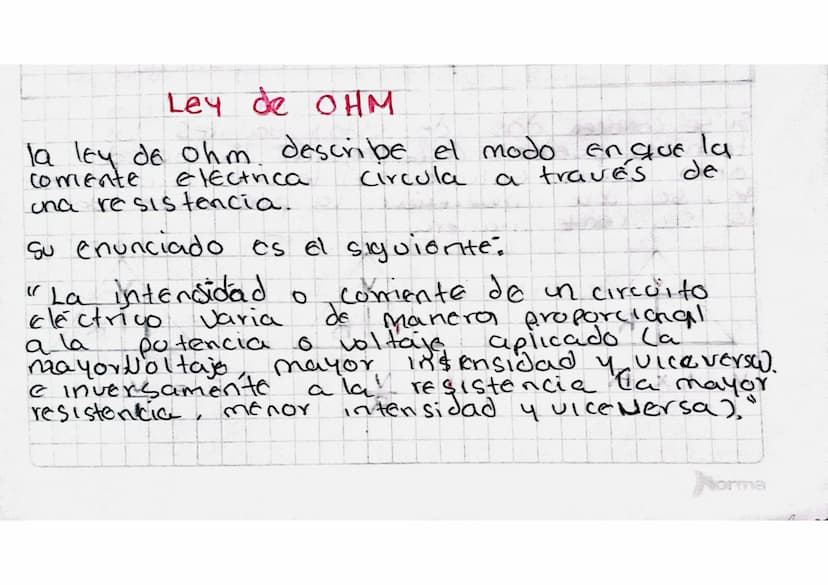 Ley de OHM
la ley de Ohm. describe el modo en que la
corriente eléctrica circula a través de
una resistencia.
su enunciado es el siguiente:
"La intensidad o corriente de un circuito
eléctrico varia de manera proporcional
a la potencia o voltaje aplicado (a
mayor voltaje, mayor intensidad y viceversa).
e inversamente a la resistencia (a mayor
resistencia, menor intensidad y viceversa)."
Norma